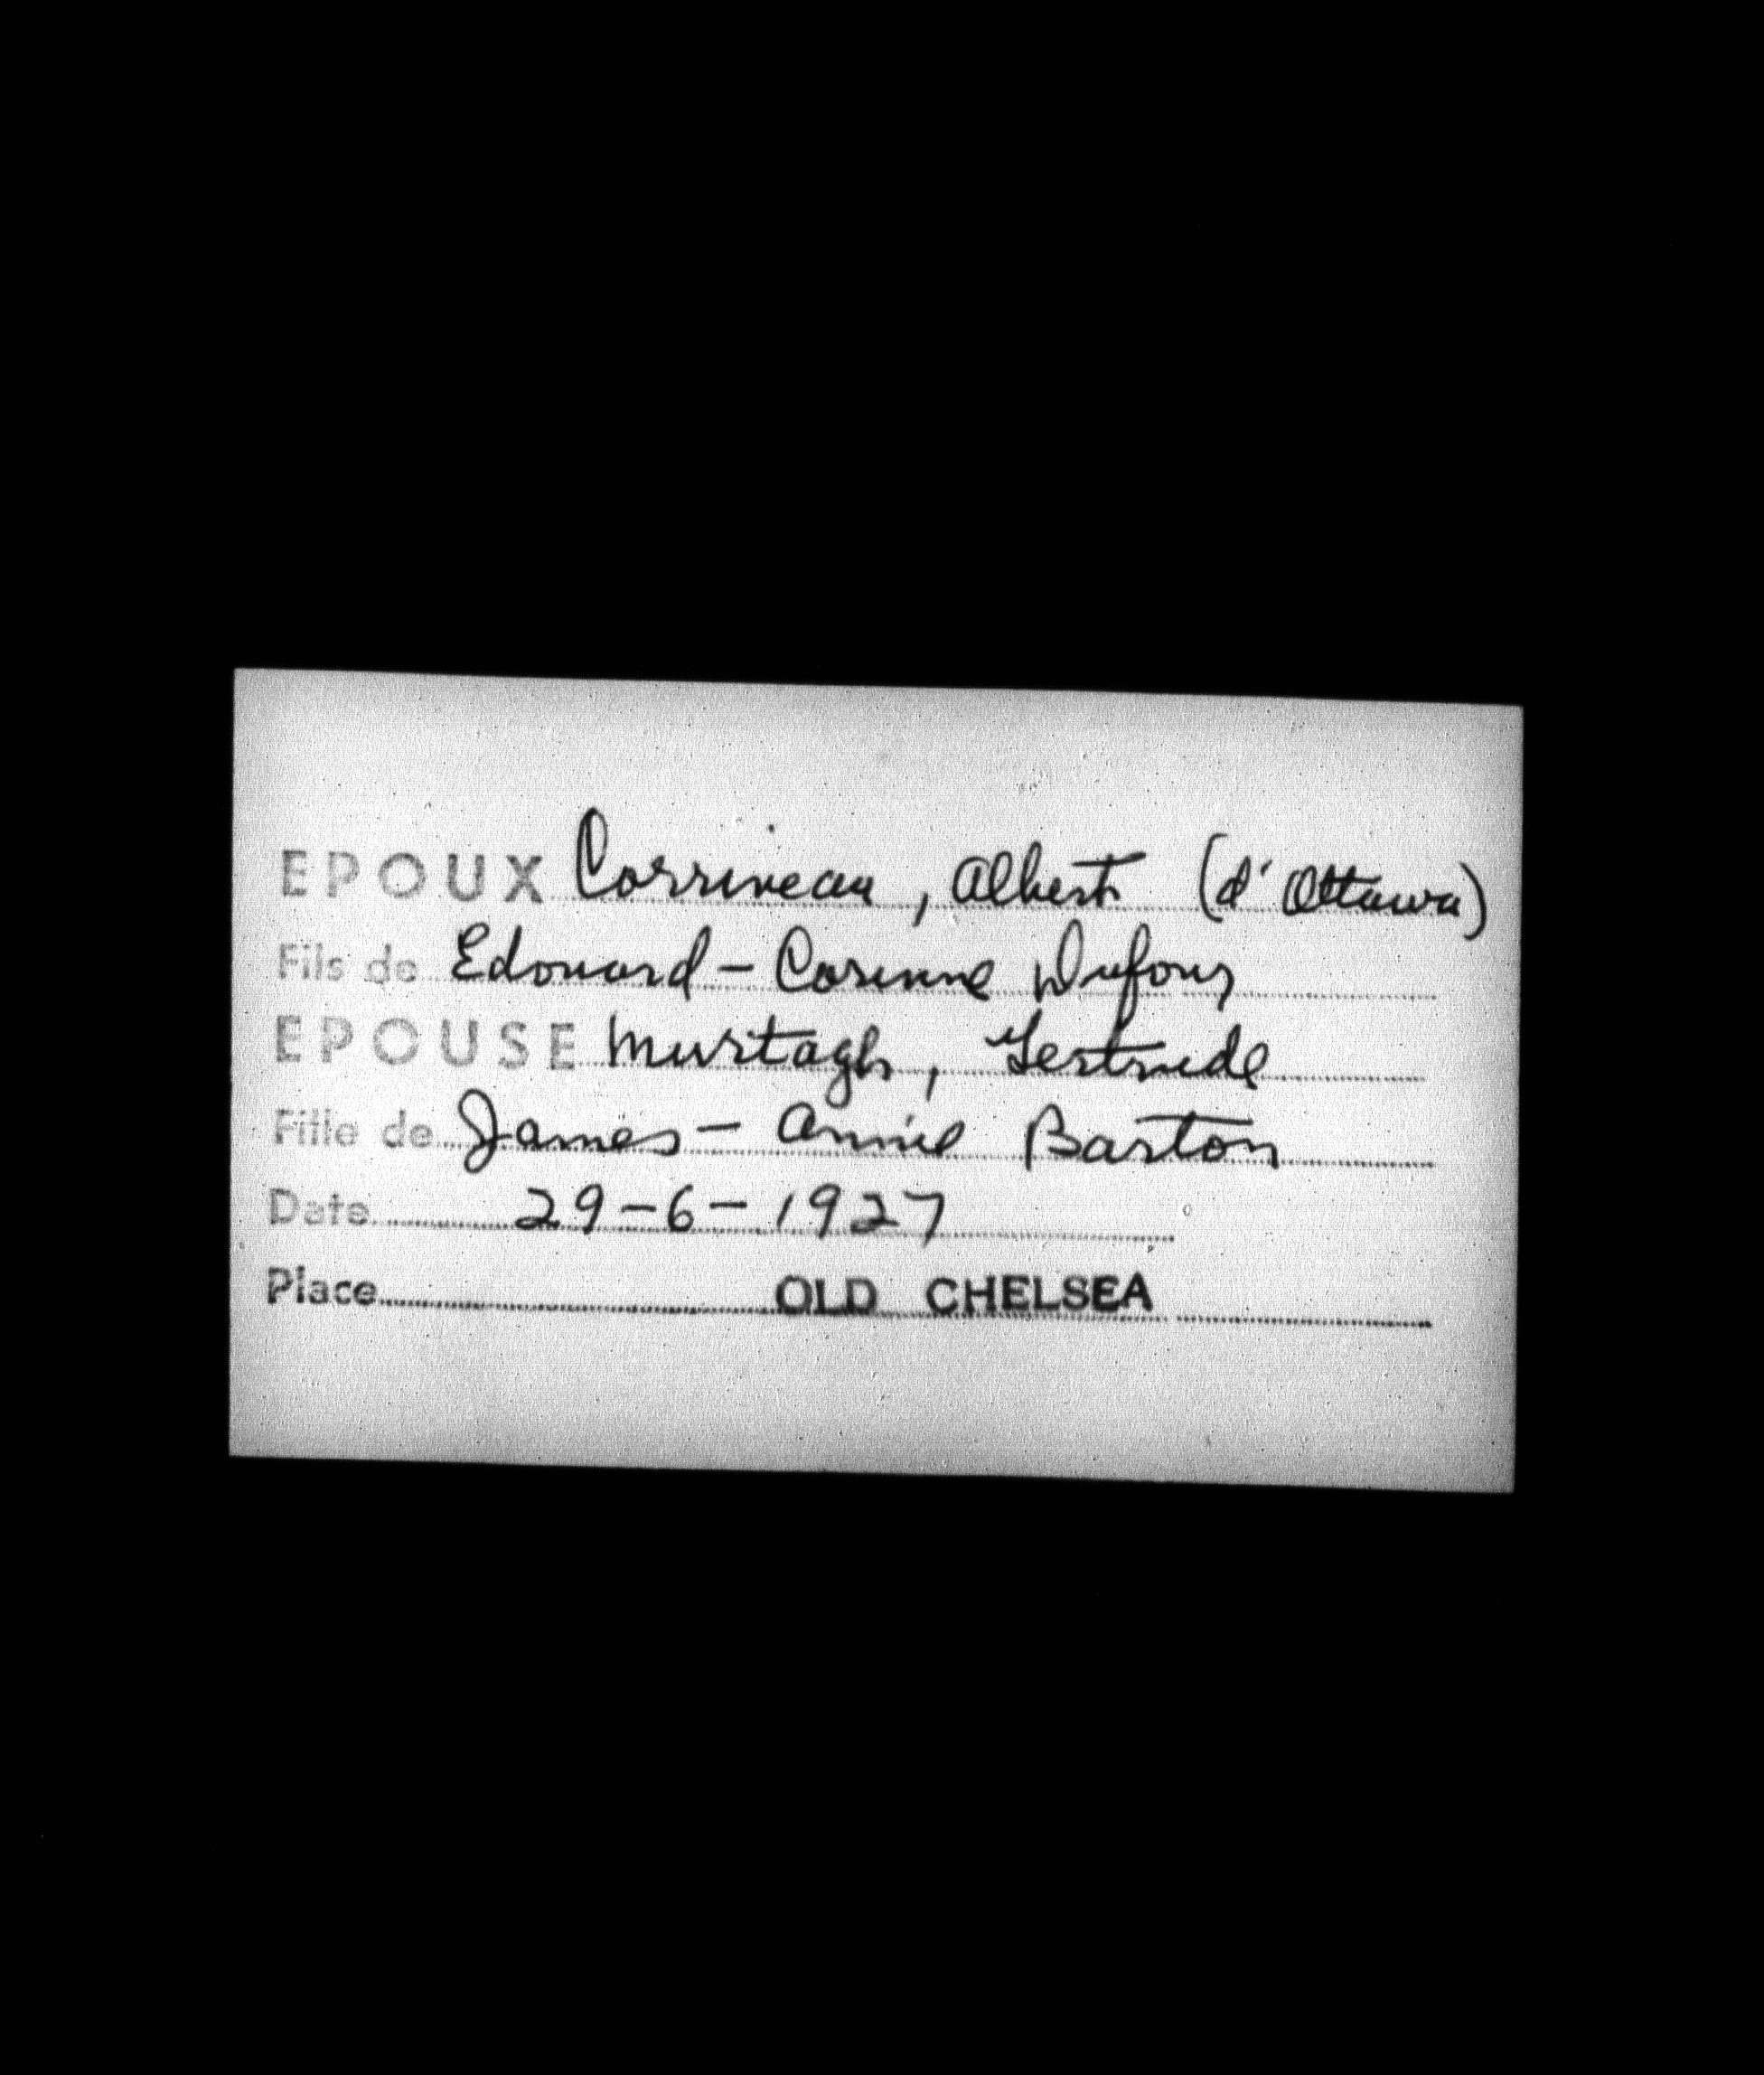 EPOUX Corriveau, Albert (d'Ottawa)
Fils de Edouard - Corinne Dufour
EPOUSE Murtagh, Gertrude
Fille de James - Annie Barton
Date 29-6-1927
Place OLD CHELSEA